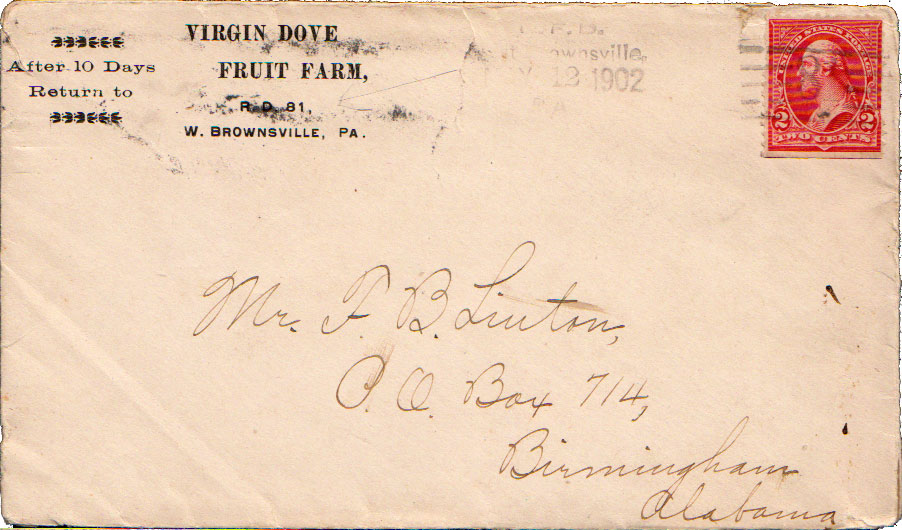 After 10 Days
Return to
VIRGIN DOVE
FRUIT FARM,
R D 81,
W. BROWNSVILLE, PA.
F. D.
ownsville,
1902
UNITED STATES POSTAGE
2 2
TWO CENTS
Mr. F. B. Linton,
P. O. Box 714,
Birmingham
Alabama